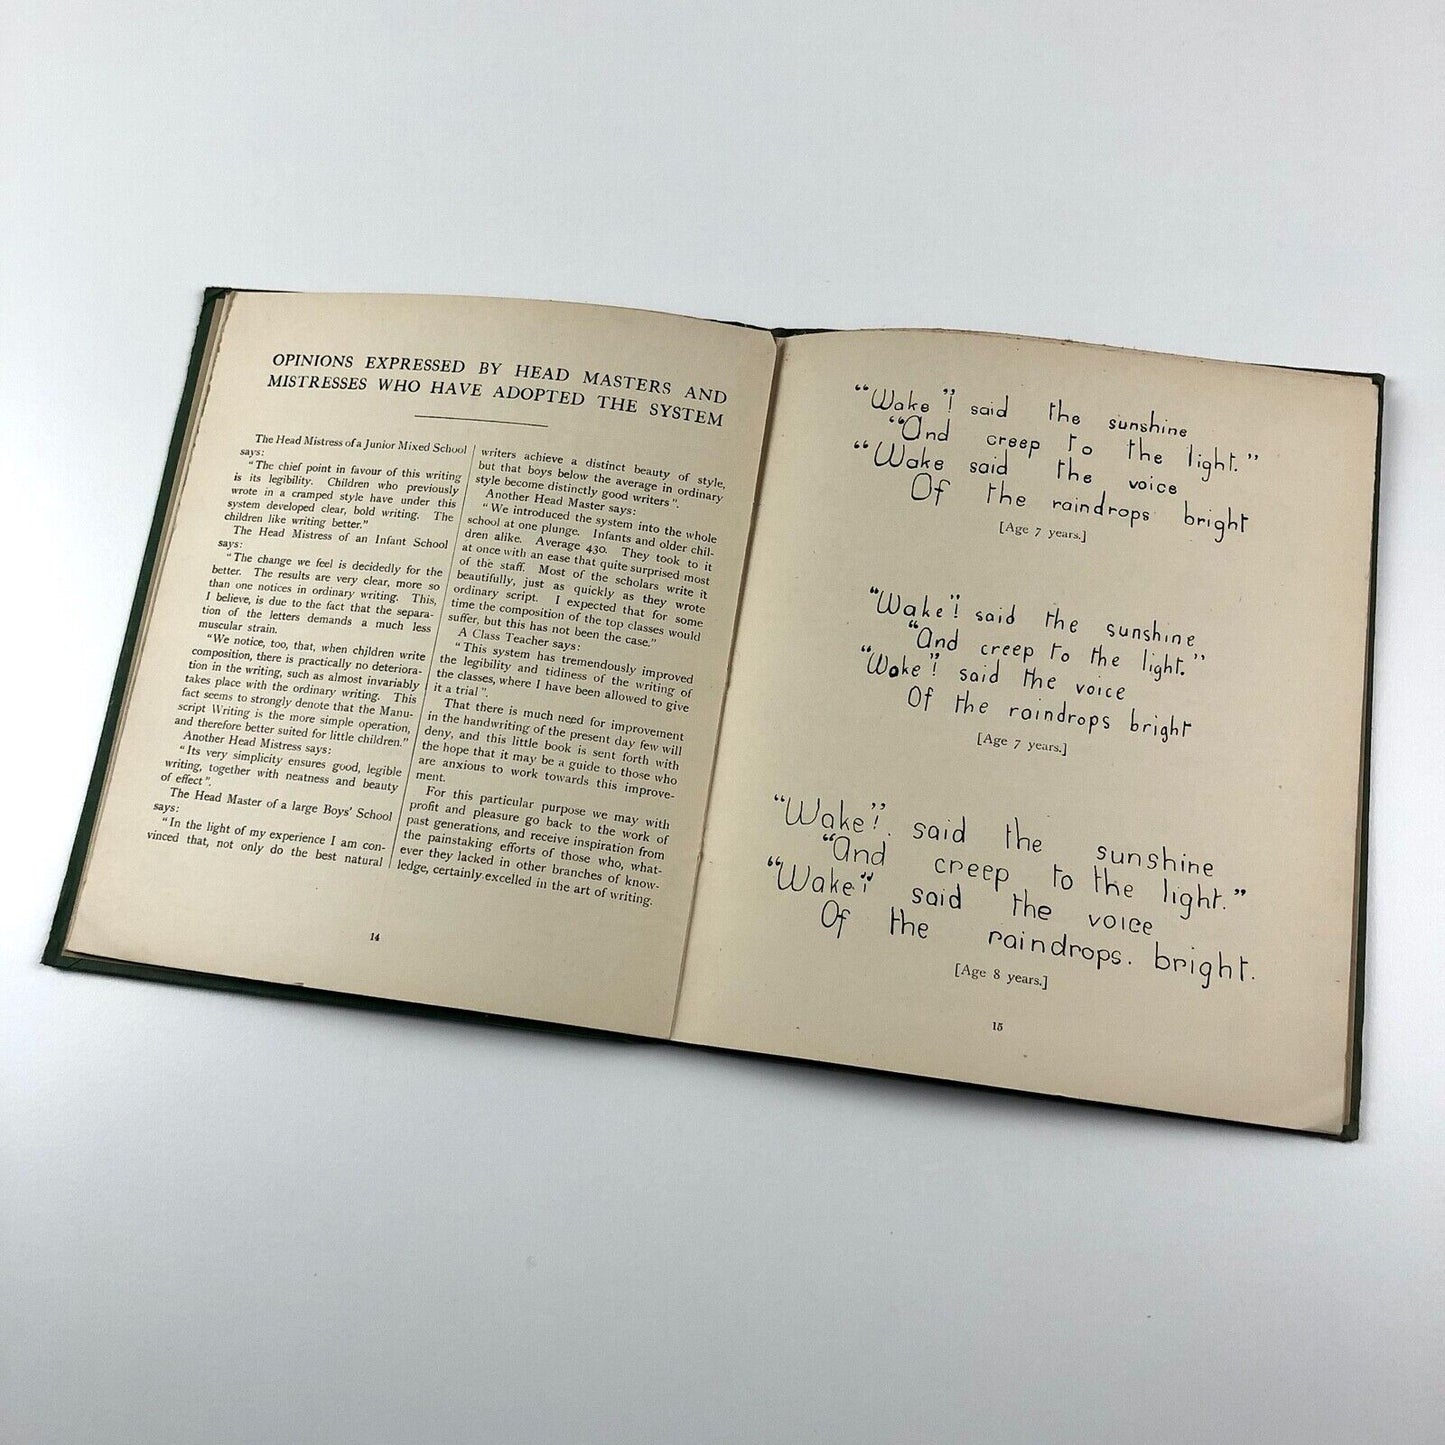 OPINIONS EXPRESSED BY HEAD MASTERS AND
MISTRESSES WHO HAVE ADOPTED THE SYSTEM
The Head Mistress of a Junior Mixed School
says:
"The chief point in favour of this writing
is its legibility. Children who previously
wrote in a cramped style have under this
system developed clear, bold writing. The
children like writing better."
The Head Mistress of an Infant School
says:
"The change we feel is decidedly for the
better. The results are very clear, more so
than one notices in ordinary writing. This,
I believe, is due to the fact that the separa-
tion of the letters demands a much less
muscular strain.
"We notice, too, that, when children write
composition, there is practically no deteriora-
tion in the writing, such as almost invariably
takes place with the ordinary writing. This
fact seems to strongly denote that the Manu-
script Writing is the more simple operation,
and therefore better suited for little children."
Another Head Mistress says:
"Its very simplicity ensures good, legible
writing, together with neatness and beauty
of effect".
The Head Master of a large Boys' School
says:
"In the light of my experience I am con-
vinced that, not only do the best natural
writers achieve a distinct beauty of style,
but that boys below the average in ordinary
style become distinctly good writers".
Another Head Master says:
"We introduced the system into the whole
school at one plunge. Infants and older chil-
dren alike. Average 430. They took to it
at once with an ease that quite surprised most
of the staff. Most of the scholars write it
beautifully, just as quickly as they wrote
ordinary script. I expected that for some
time the composition of the top classes would
suffer, but this has not been the case."
A Class Teacher says:
"This system has tremendously improved
the legibility and tidiness of the writing of
the classes, where I have been allowed to give
it a trial".
That there is much need for improvement
in the handwriting of the present day few will
deny, and this little book is sent forth with
the hope that it may be a guide to those who
are anxious to work towards this improve-
ment.
For this particular purpose we may with
profit and pleasure go back to the work of
past generations, and receive inspiration from
the painstaking efforts of those who, what-
ever they lacked in other branches of know-
ledge, certainly excelled in the art of writing.
14
"Wake"! said the sunshine
"And creep to the light."
"Wake said the voice
Of the raindrops bright
[Age 7 years.]
"Wake"! said the sunshine
"And creep to the light."
"Wake"! said the voice
Of the raindrops bright
[Age 7 years.]
"Wake!". said the sunshine
"And creep to the light."
"Wake!" said the voice
Of the raindrops. bright.
[Age 8 years.]
15